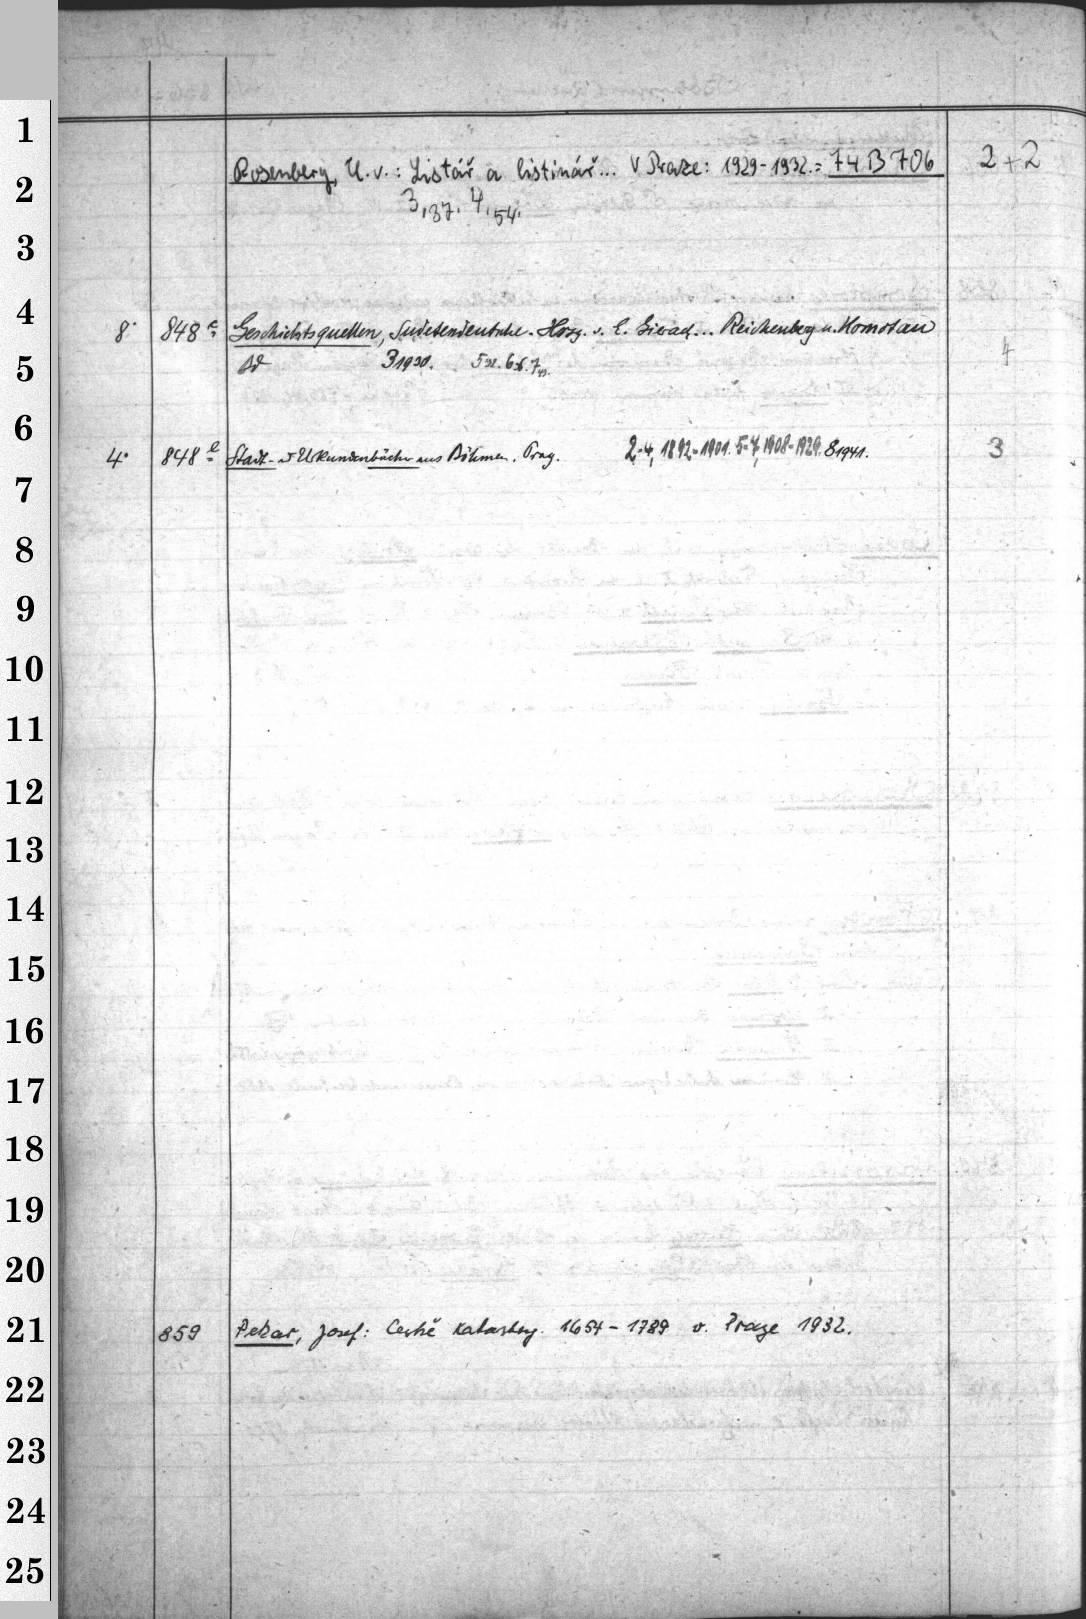 1
2
3
4
5
6
7
8
9
10
11
12
13
14
15
16
17
18
19
20
21
22
23
24
25
Rosenberg, U. v.: Listář a listinář... V Praze: 1929-1932.= 74 B 706 2+2
3,37. 4,54.
8° 848 Geschichtsquellen, Sudetendeutsche. Hrsg. v. E. Gierach... Reichenberg u. Komotau 4
Bd 3 1930. 5 6 7
4° 848 Stadt- u Urkundenbücher aus Böhmen. Prag. 2-4, 1892-1901. 5-7, 1908-1929. 8 1941. 3
859 Pekar, Josef: České katastry. 1654-1789 v. Praze 1932.